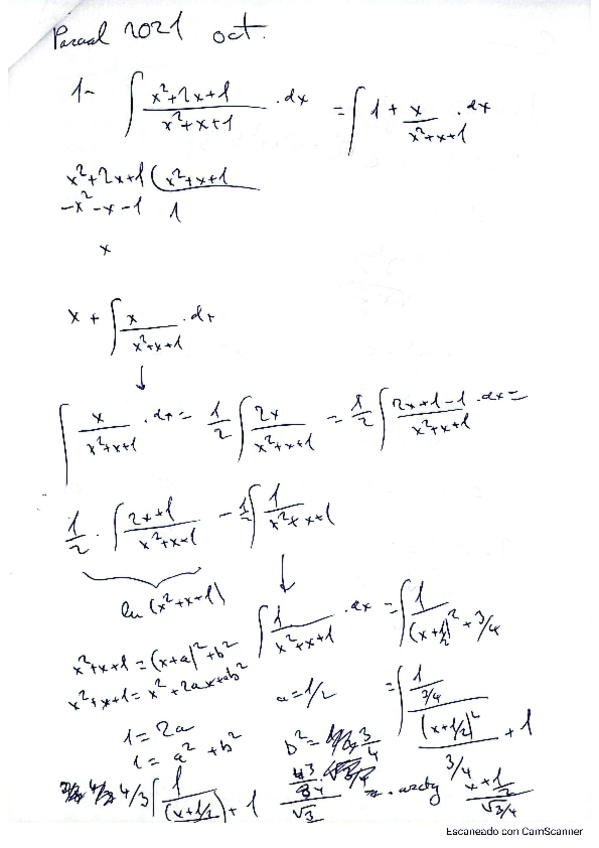 Parcial 2021 oct.
1- ∫ (x²+2x+1)/(x²+x+1) · dx = ∫ 1 + x/(x²+x+1) · dx
x²+2x+1 ( x²+x+1
-x²-x-1 1
x
x + ∫ x/(x²+x+1) · dx
↓
∫ x/(x²+x+1) · dx = 1/2 ∫ 2x/(x²+x+1) = 1/2 ∫ (2x+1-1)/(x²+x+1) · dx =
1/2 · ∫ (2x+1)/(x²+x+1) - 1/2 ∫ 1/(x²+x+1)
↓
ln (x²+x+1)
∫ 1/(x²+x+1) · dx = ∫ 1/((x+1/2)² + 3/4)
x²+x+1 = (x+a)²+b²
x²+x+1 = x²+2ax+ab² a = 1/2 = ∫ (1/(3/4))/((x+1/2)²/(3/4) + 1)
1 = 2a
1 = a² + b² b² = 3/4
4/3 ∫ 1/(x+1/2) + 1 √3 · arctg (x+1/2)/√3/4
Escaneado con CamScanner